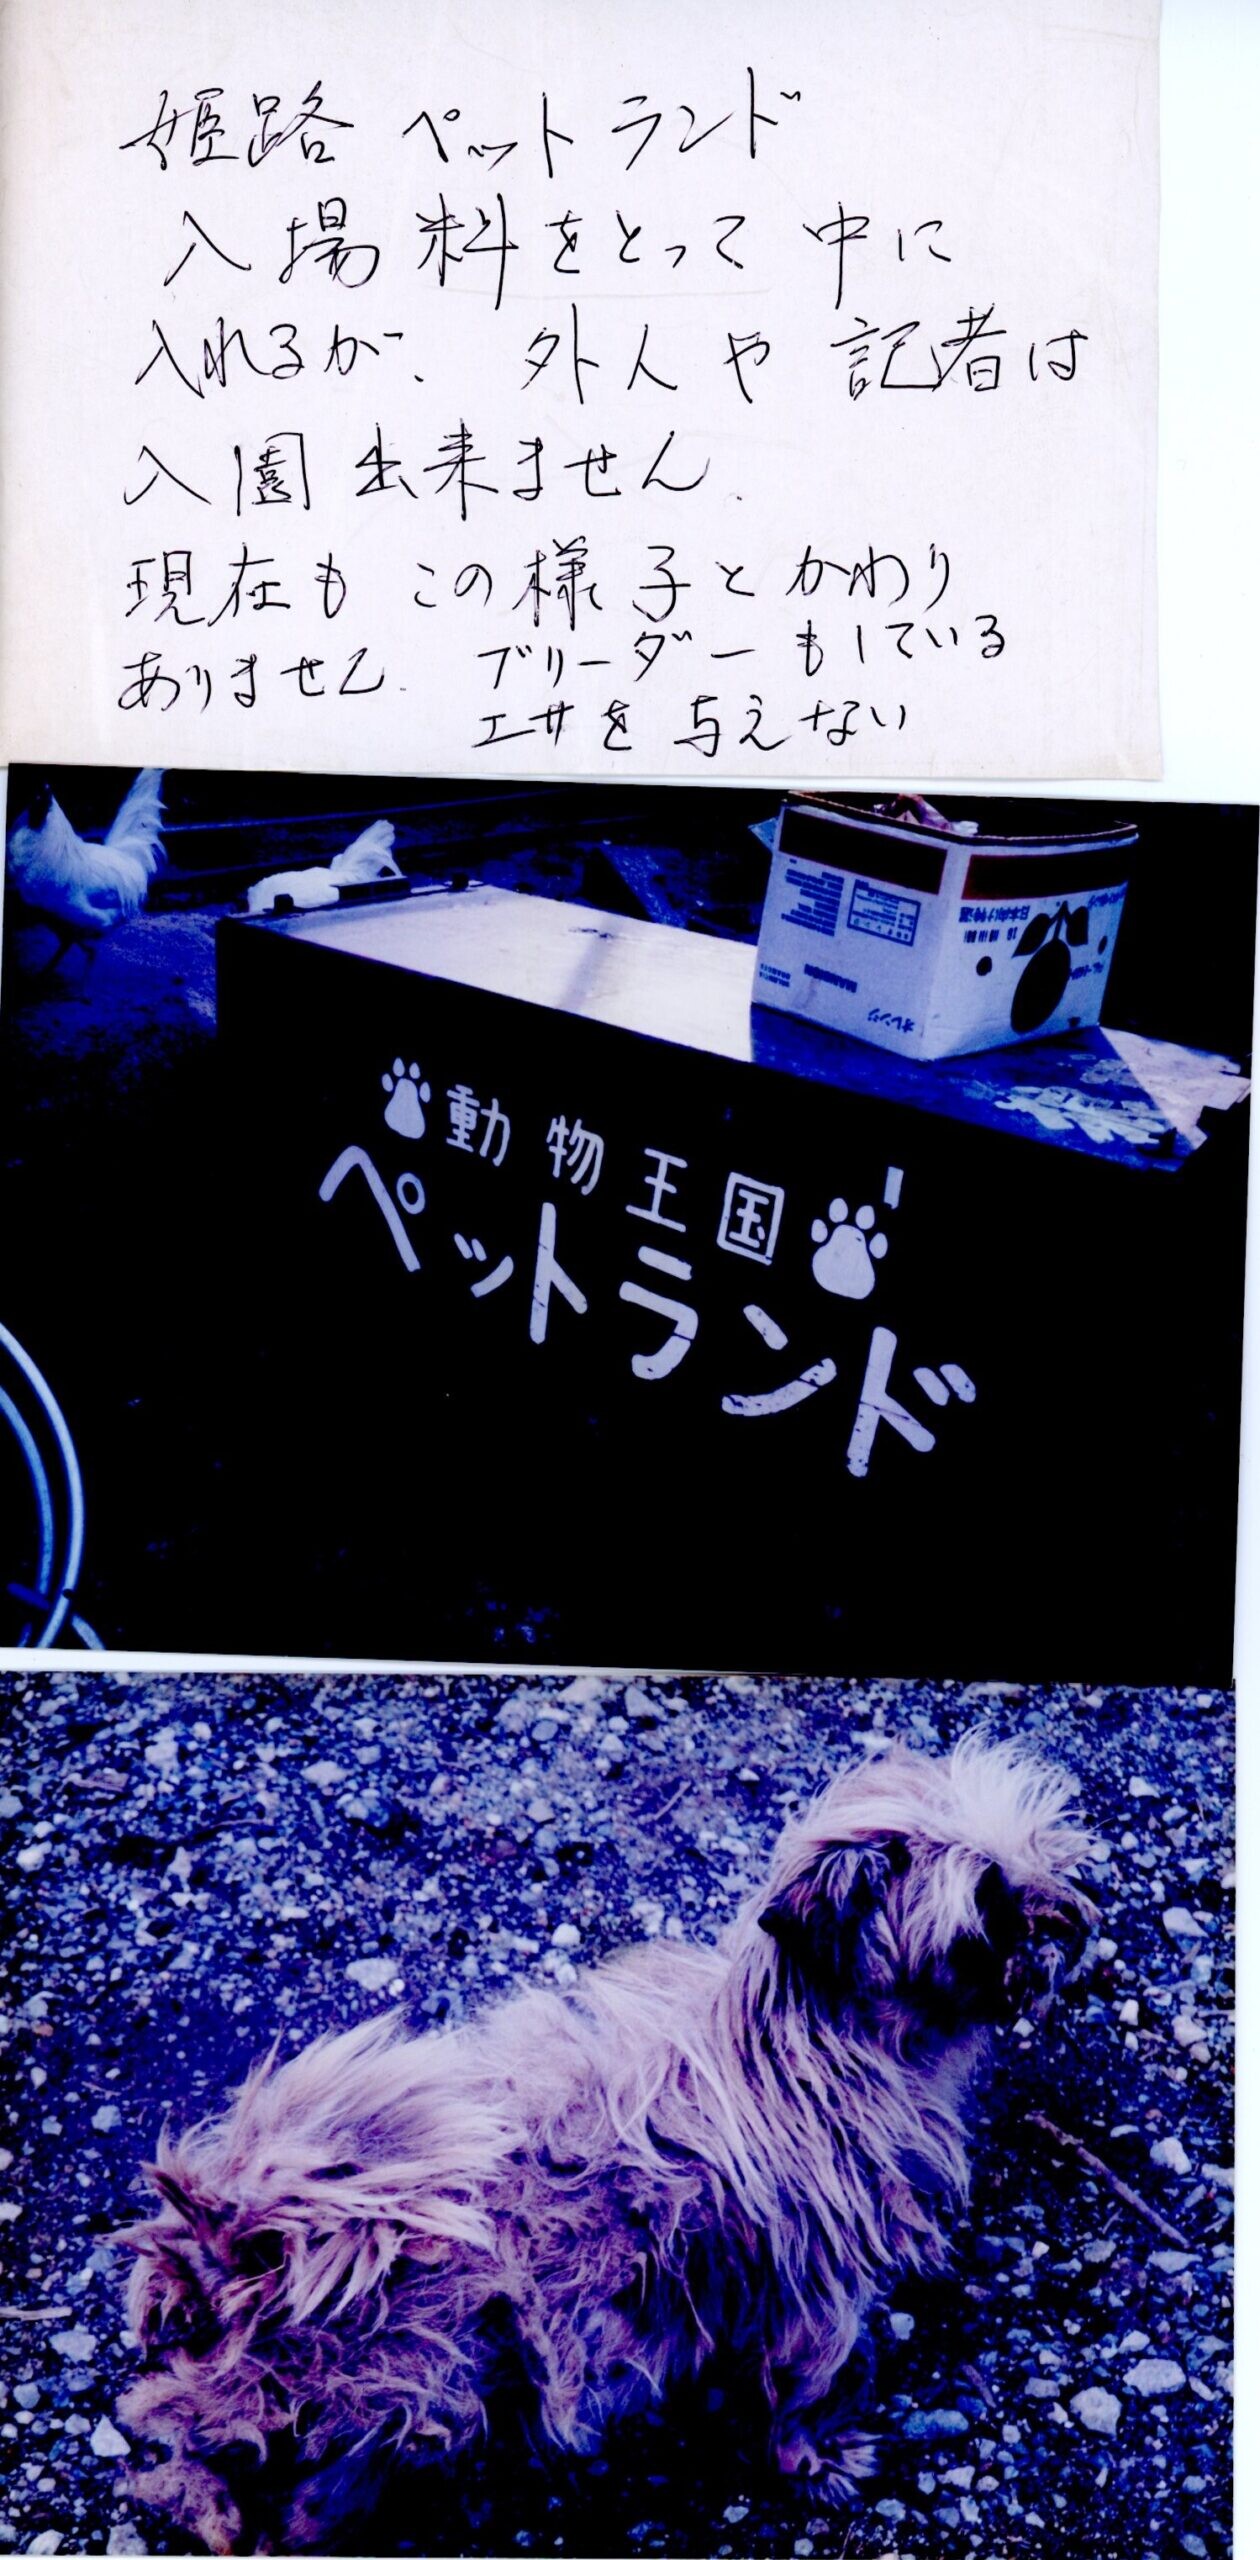 姫路 ペットランド
入場料をとって中に
入れるが、外人や記者は
入園出来ません.
現在もこの様子とかわり
ありません. ブリーダーもしている
エサを与えない
日本向け特選
オレンジ
動物王国
ペットランド